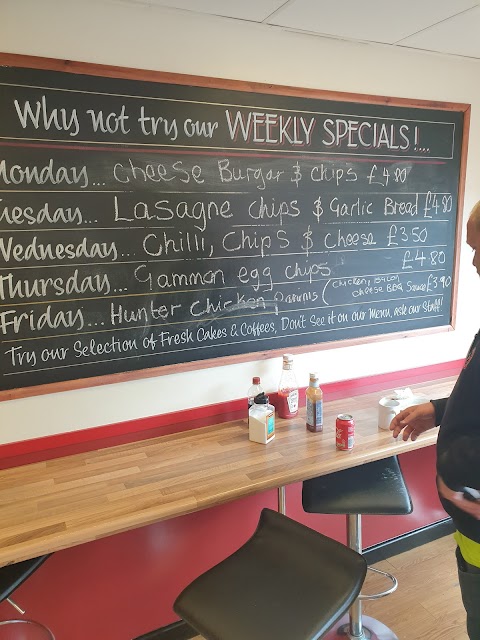 Why not try our WEEKLY SPECIALS!...
Monday... Cheese Burgar & chips £4.80
Tuesday... Lasagne chips & Garlic Bread £4.80
Wednesday... Chilli, Chips & Cheese £3.50
Thursday... Gammon egg chips £4.80
Friday... Hunter Chicken Paninis (Chicken, Bacon cheese BBQ Sauce £3.90
Try our Selection of Fresh Cakes & Coffees, Don't See it on our Menu, ask our Staff!